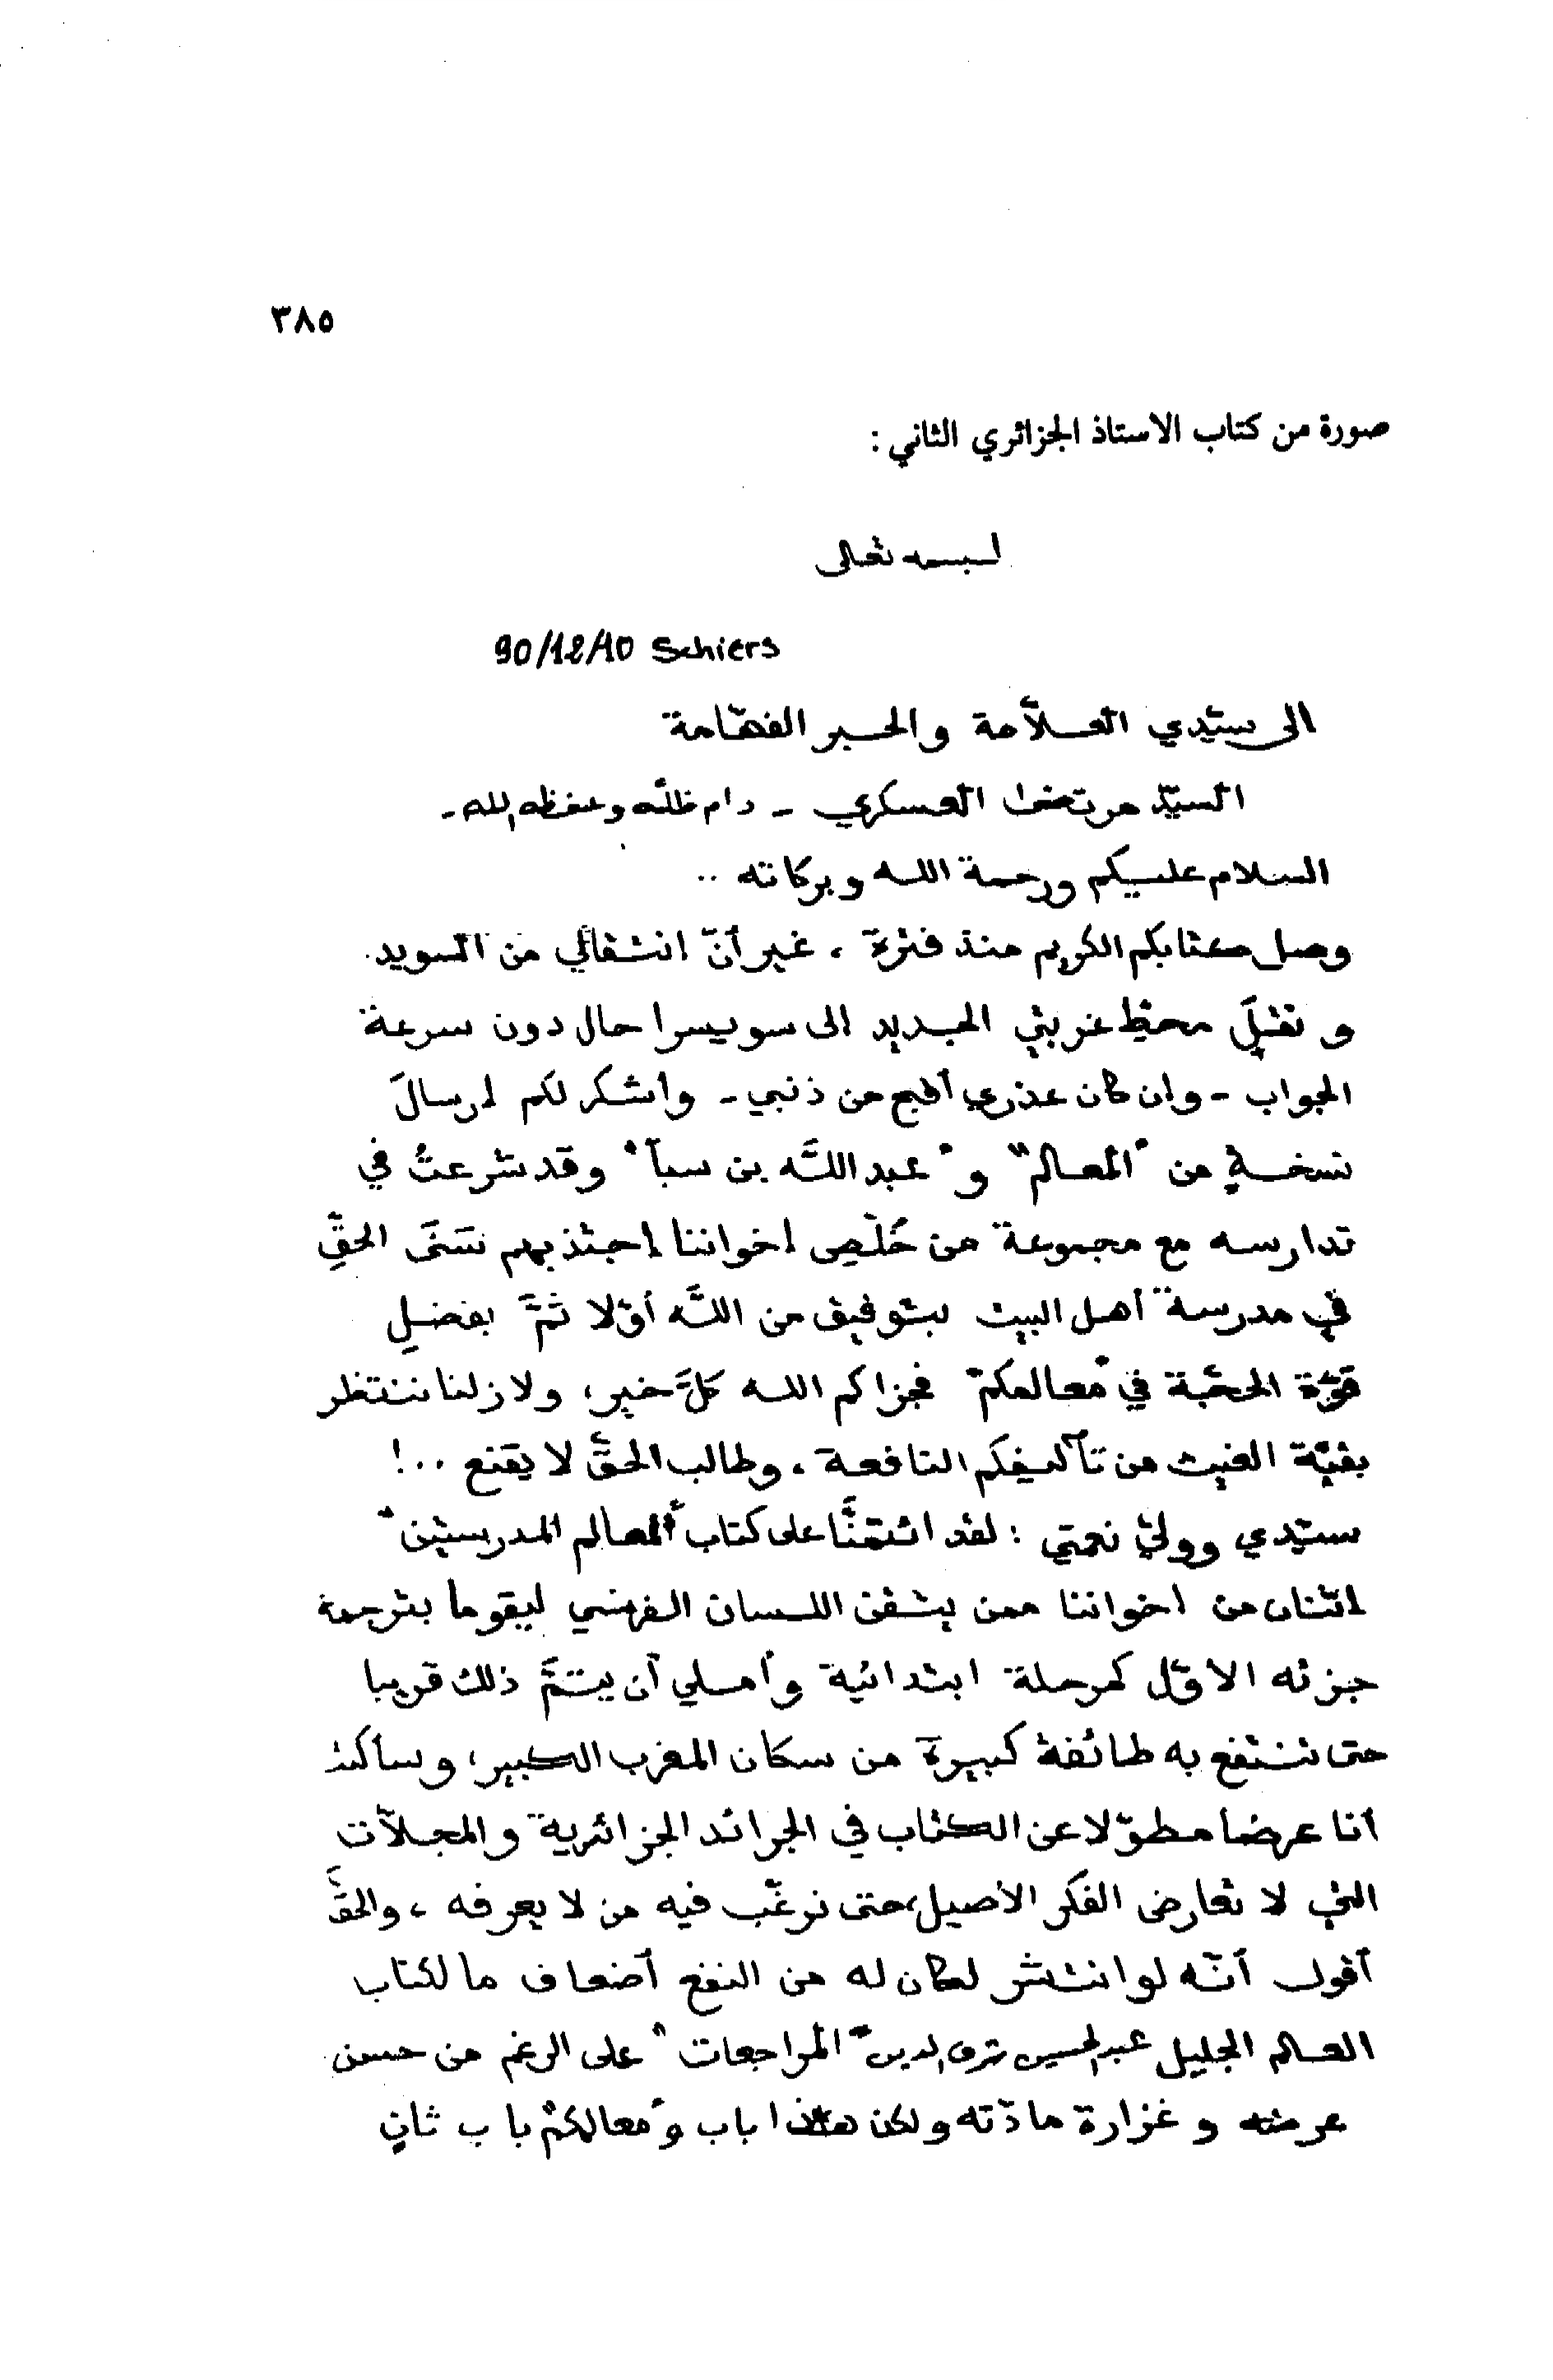 ٣٨٥
صورة من كتاب الاستاذ الجزائري الثاني :
بسمه تعالى
90/12/10 Schiers
الى سيّدي العلاّمة والحبر الفهّامة
السيّد مرتضى العسكري - دام ظلّه وحفظه الله -
السلام عليكم ورحمة الله وبركاته ..
وصل كتابكم الكريم منذ فترة ، غير أنّ انتقالي من السويد
و محطّ غربتي الجديد الى سويسرا حال دون سرعة
الجواب - وان كان عذري أقبح من ذنبي - وأشكر لكم إرسالَ
نسخةٍ من "المعالم" و "عبد اللّه بن سبأ" وقد شرعتُ في
تدارسه مع مجموعة من خُلّصِ اخواننا اجتذبهم سَنَى الحقِّ
في مدرسة أهل البيت بتوفيق من اللّه أوّلا ثمَّ بفضلِ
قوّة الحجّة في "معالمكم" فجزاكم الله كلَّ خير، ولا زلنا ننتظر
بقيّة الغيث من تآليفكم النافعة ، وطالب الحقِّ لا يقنع ..!
سيّدي ووليّ نعمتي : لقد ائتمنَّا على كتاب "المعالم المدرستين"
اثنان من اخواننا ممن يتقن اللسان الفرنسي ليقوما بترجمة
جزئه الاوّل كمرحلة ابتدائية وأملي أن يتمَّ ذلك قريبا
حتى تنتفع به طائفة كبيرة من سكان المغرب الكبير، وسأكتب
أنا عرضا مطوّلا عن الكتاب في الجرائد الجزائرية والمجلاّت
التي لا تعارض الفكر الأصيل، حتى نرغّب فيه من لا يعرفه ، والحقَّ
أقول أنّه لو انتشر لكان له من النفع أضعاف ما لكتاب
العالم الجليل عبد الحسين شرف الدين "المراجعات" على الرغم من حسن
عرضه و غزارة مادّته ولكن هذا باب و"معالمكم" باب ثانٍ